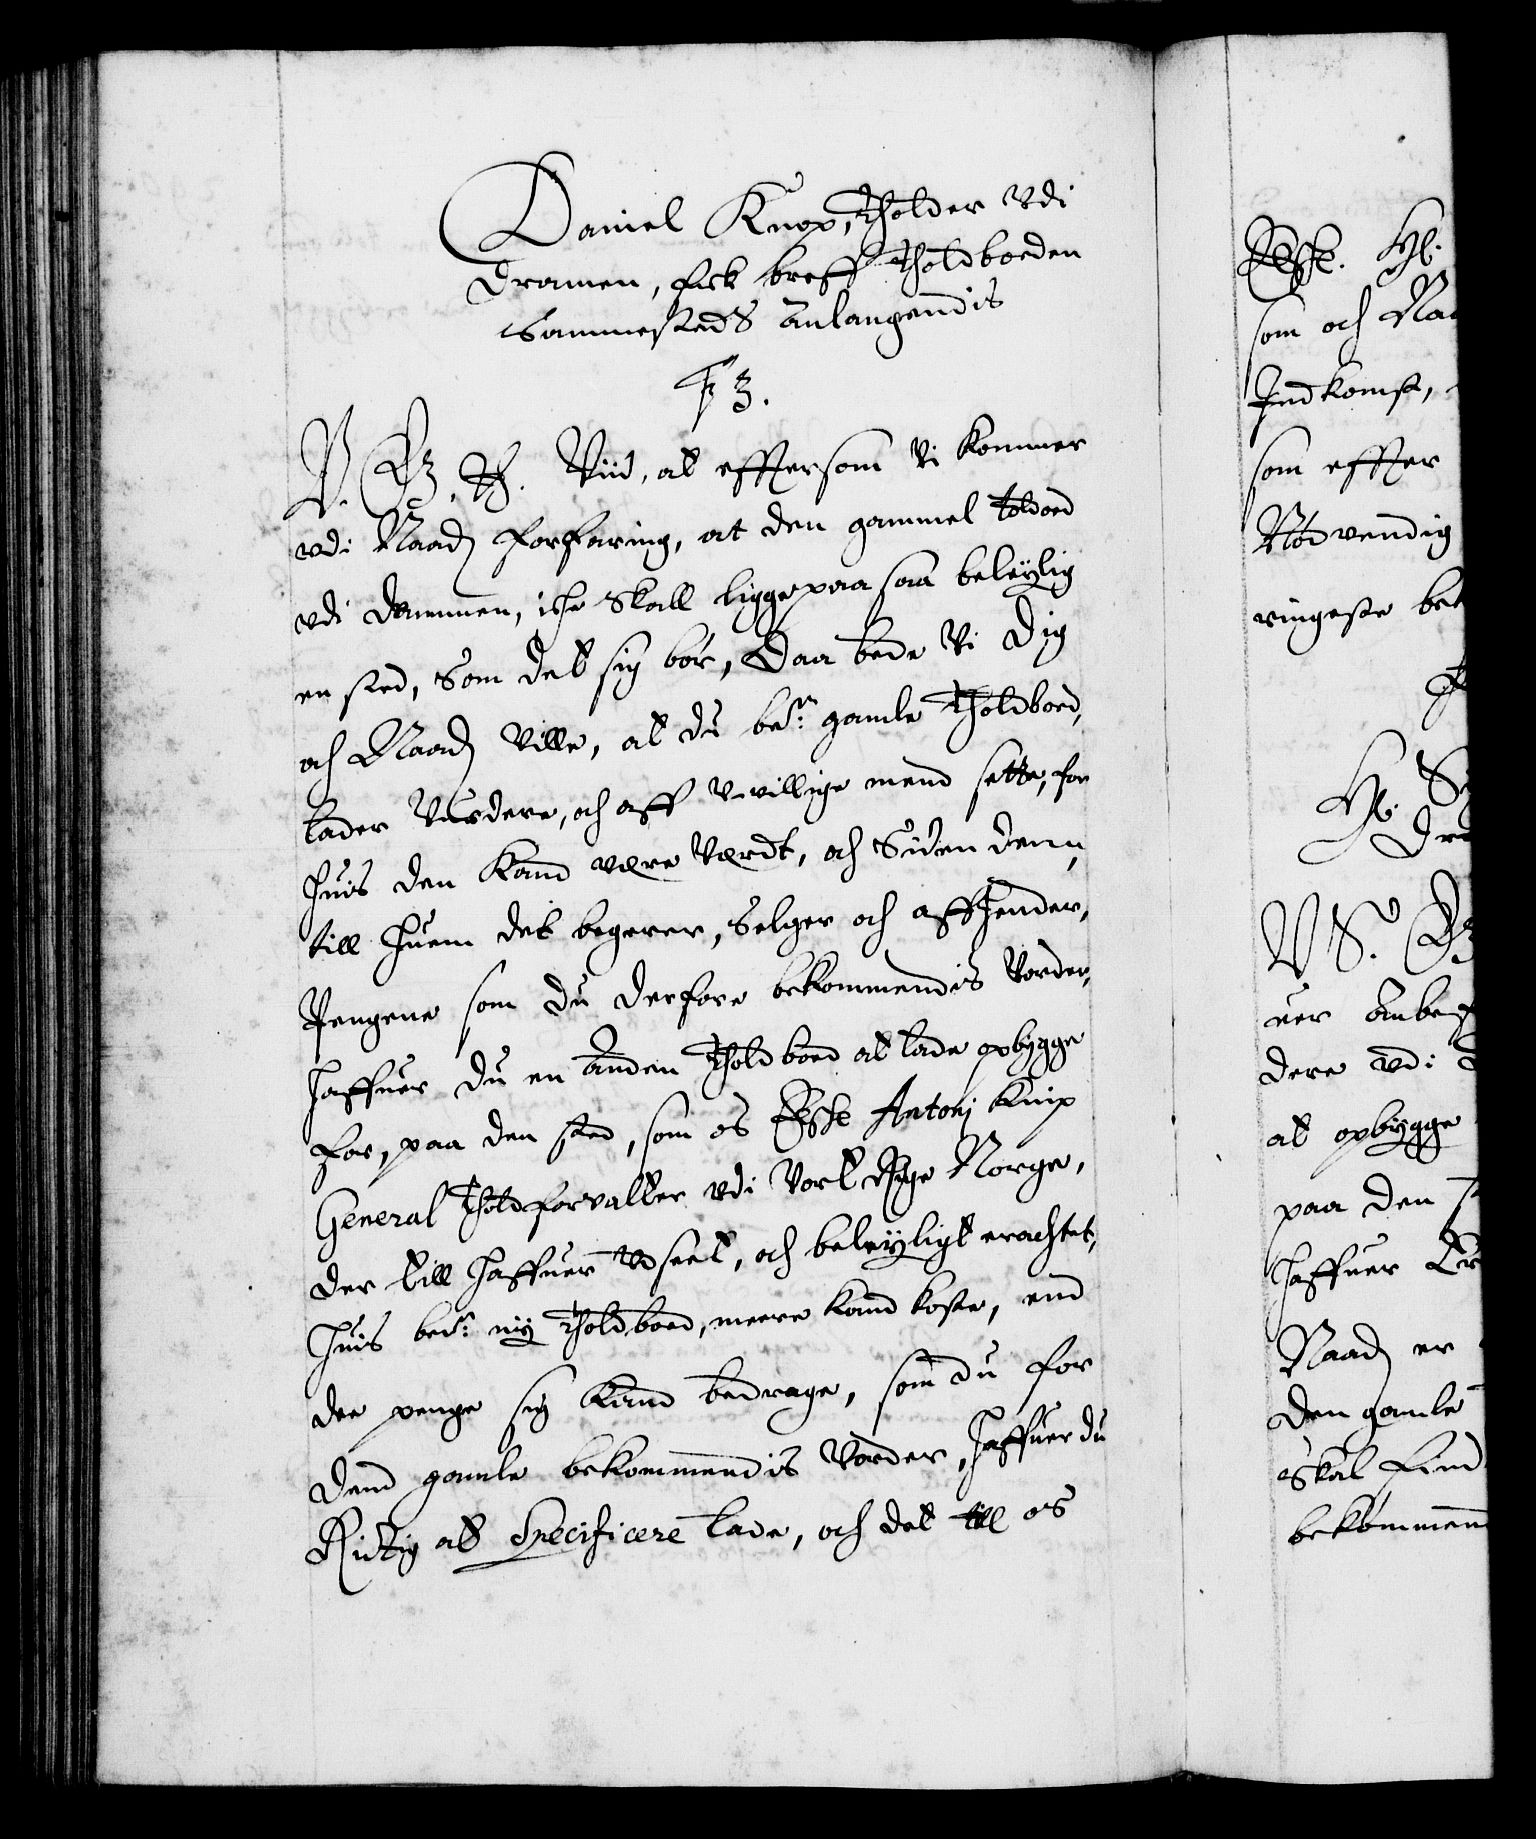 Daniel Knop, Tholder Vdi
Dramen, fick breff Tholdboeden
Sammesteds anlangendis
C 3.
V. G. T. Viid, at efftersom Vi kommer
vdi Naad. forfaring, at den gammel toldboed
vdi Drammen, iche skall ligge paa saa beleÿlig
en sted, Som det sig bór, Daa bede Vi Dig
och Naad. Ville, at du be.te gamle Tholdboed,
lader Vurdere, och aff Vvillige mend sette, for
huis den kand vere Verdt, och Siden denn,
till huem det begerer, selger och affhender,
Pengene som du derfore bekommendis Vorder,
haffuer du en anden Tholdboed at lade opbÿgge
for, paa den sted, som os Elskl. Antonj Knip
General Tholdforvalter vdi Vort Rige Norge,
der till haffuer Vdseet, och beleÿligt erachtet,
huis be.te nÿ Tholdboed, meere kand koste, end
dee penge sig kand bedrage, som du for
dend gamle bekommendis Vorder, haffuer du
Rictig at Specificere lade, och det till os
Elskl. Hl.
som och Naa
Indkomst,
som effter
Nódvendig
ringeste be
Hl.
Dra
V S. G
uer anbe
dere vdi
at opbÿgge
paa den
haffuer
Naad. er
den gamle
skal find
bekommen